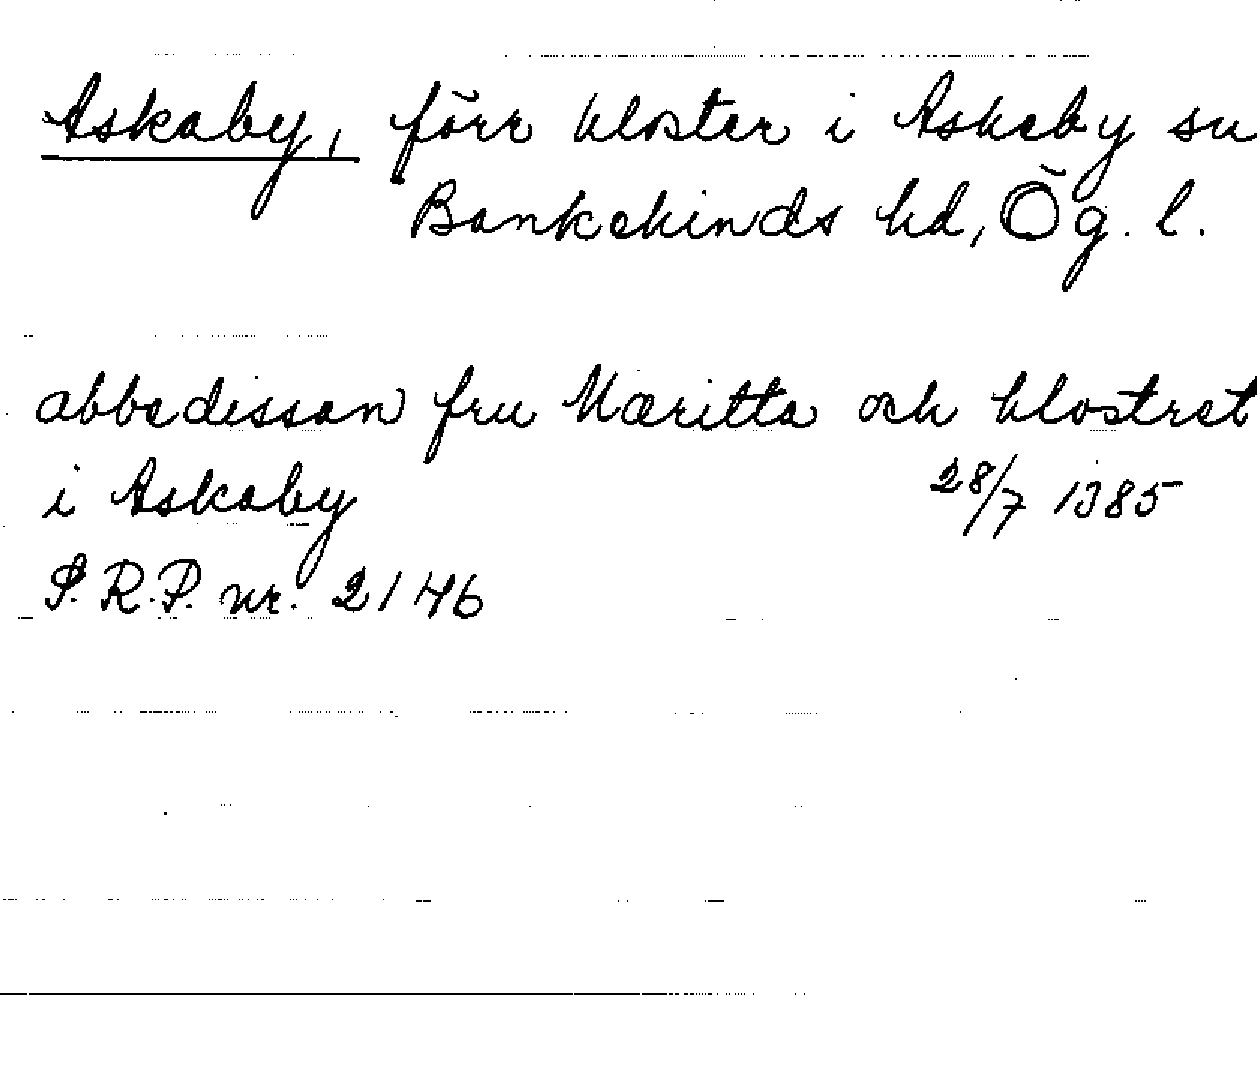 Askaby, förr kloster i Askeby sn
Bankekinds hd, Ög. l.
abbedissan fru Mæritta och klostret
i Askaby 28/7 1385
S.R.P. nr. 2146